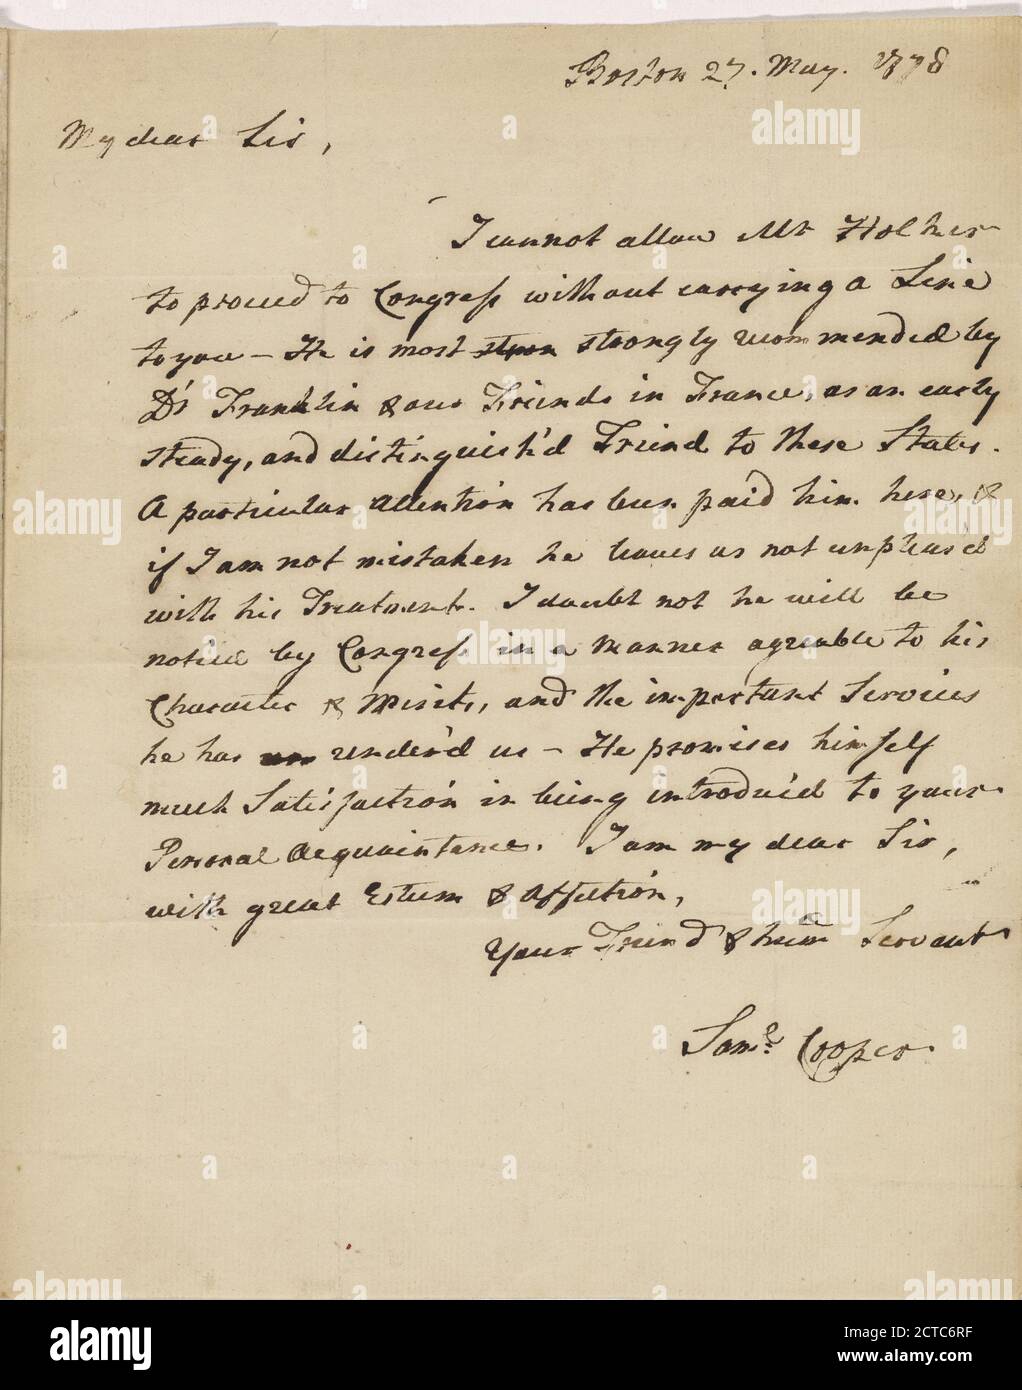 Boston 27. May. 1778
My dear Sir,
I cannot allow Mr Holker
to proceed to Congress without carrying a Line
to you — He is most stron strongly recommended by
Dr Franklin & our Friends in France, as an early
steady, and distinguish'd Friend to these States.
A particular Attention has been paid him here, &
if I am not mistaken he leaves us not unpleas'd
with his Treatment. I doubt not he will be
notice by Congress in a manner agreable to his
Character & Merits, and the important Services
he has render'd us — He promises himself
much Satisfaction in being introduc'd to your
Personal Acquaintance. I am my dear Sir,
with great Esteem & Affection,
Your Friend & hume Servant
Saml Cooper
alamy
Image ID: 2CTC6RF
www.alamy.com